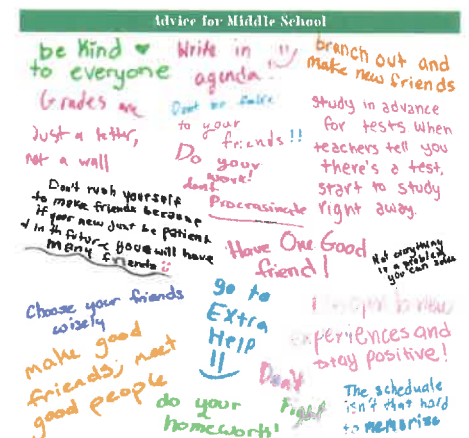 Advice for Middle School
be Kind ♥
to everyone
Write in
agenda!
branch out and
make new friends
Grades are
Just a letter,
not a wall
Dont be
to your
friends!!
Do your
work!
dont
Procrasinate
study in advance
for tests when
teachers tell you
there's a test,
start to study
right away.
Don't rush yourself
to make friends because
if your new just be patient
in the future youe will have
many friends
Have One Good
friend!
Not everything
is a problem
you can solve
Choose your friends
wisely
go to
EXtra
Help
!!
to new
experiences and
stay positive!
make good
friends, meet
good people
do your
homework!
Don't
Fight
The scheduale
isn't that hard
to memorise